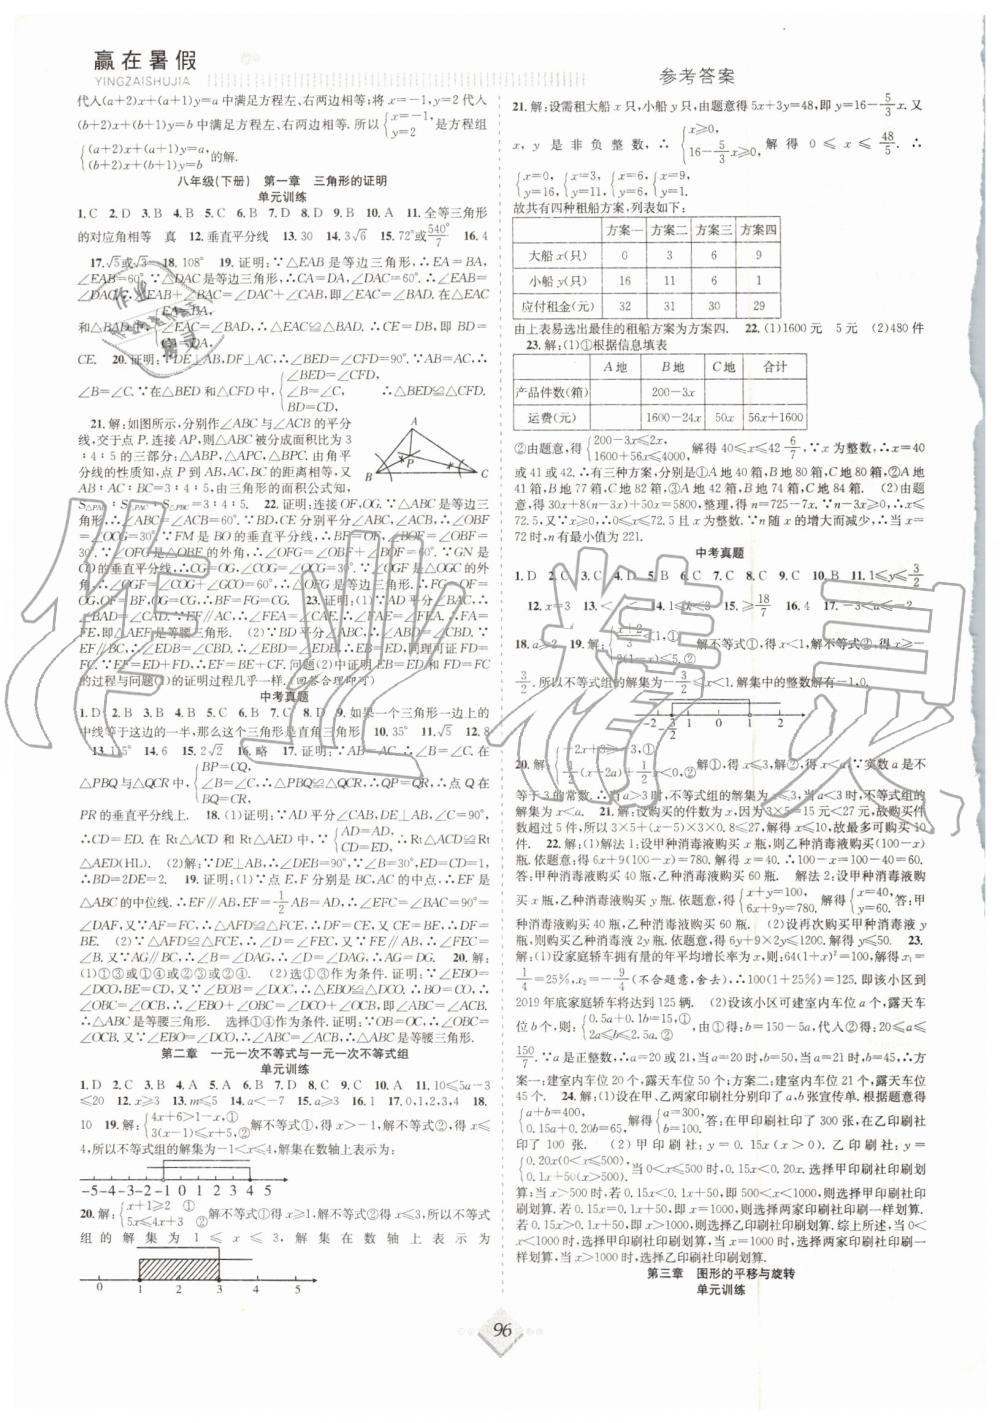 赢在暑假
YINGZAISHUJIA
参考答案
代入(a+2)x+(a+1)y=a中满足方程左、右两边相等;将x=-1,y=2代入
(b+2)x+(b+1)y=b中满足方程左、右两边相等.所以{x=-1, y=2 是方程组
{(a+2)x+(a+1)y=a, (b+2)x+(b+1)y=b 的解.
八年级(下册) 第一章 三角形的证明
单元训练
1.C 2.D 3.B 4.B 5.C 6.B 7.D 8.D 9.B 10.A 11.全等三角形
的对应角相等 真 12.垂直平分线 13.30 14.3√6 15.72°或540°/7 16.4
17.√5或√3 18.108° 19.证明:∵△EAB是等边三角形,∴EA=BA,
∠EAB=60°.∵△DAC是等边三角形,∴CA=DA,∠DAC=60°.∴∠EAB=
∠DAC.∴∠EAB+∠BAC=∠DAC+∠CAB,即∠EAC=∠BAD.在△EAC
和△BAD中,{EA=BA, ∠EAC=∠BAD,∴△EAC≌△BAD.∴CE=DB,即BD=
CE. 20.证明:∵DE⊥AB,DF⊥AC,∴∠BED=∠CFD=90°.∵AB=AC,∴
∠B=∠C.∵在△BED和△CFD中,{∠BED=∠CFD, ∠B=∠C, BD=CD, ∴△BED≌△CFD.
21.解:如图所示,分别作∠ABC与∠ACB的平分
线,交于点P.连接AP,则△ABC被分成面积比为3
∶4∶5的三部分:△ABP,△APC,△BPC.由角平
分线的性质知,点P到AB,AC,BC的距离相等,又
AB∶AC∶BC=3∶4∶5,由三角形的面积公式知,
S△PAB∶S△PAC∶S△PBC=3∶4∶5. 22.证明:连接OF,OG.∵△ABC是等边三
角形,∴∠ABC=∠ACB=60°.∵BD,CE分别平分∠ABC,∠ACB,∴∠OBF
=∠OCG=30°.∵FM是BO的垂直平分线,∴BF=OF,∠BOF=∠OBF=
30°.∵∠OFG是△OBF的外角,∴∠OFG=∠OBF+∠BOF=60°.∵GN是
CO的垂直平分线,∴CG=OG,∠COG=∠OCG=30°.∵∠OGF是△OGC的外
角,∴∠OGF=∠COG+∠GCO=60°,∴△OFG是等边三角形.∴FG=OF=
OG,OF=BF,OG=CG,∴BF=FG=GC. 23.证明:(1)∵AD平分∠BAC,∴
∠BAD=∠CAD.∵EF∥AB,∴∠BAD=∠EFA.∴∠EFA=∠CAD.∴FA=
FE,即△AEF是等腰三角形. (2)∵BD平分∠ABC,∴∠ABD=∠CBD.∵
EF∥BC,∴∠EDB=∠CBD.∴∠EBD=∠EDB,∴EB=ED,同理可证FD=
FC.∵EF=ED+FD,∴EF=BE+CF.问题(2)中证明EB=ED和FD=FC
的过程与问题(1)的证明过程几乎一样.(回答合理即可)
中考真题
1.D 2.B 3.C 4.D 5.D 6.B 7.B 8.D 9.如果一个三角形一边上的
中线等于这边的一半,那么这个三角形是直角三角形 10.35° 11.√5 12.8
13.115° 14.6 15.2√2 16.略 17.证明:∵AB=AC,∴∠B=∠C.在
△PBQ与△QCR中,{BP=CQ, ∠B=∠C, BQ=CR, ∴△PBQ≌△QCR,∴QP=QR,∴点Q在
PR的垂直平分线上. 18.(1)证明:∵AD平分∠CAB,DE⊥AB,∠C=90°,
∴CD=ED.在Rt△ACD和Rt△AED中,∵{AD=AD, CD=ED, ∴Rt△ACD≌Rt
△AED(HL). (2)解:∵DE⊥AB,∴∠DEB=90°.∵∠B=30°,ED=CD=1,
∴BD=2DE=2. 19.证明:(1)∵点E,F分别是BC,AC的中点,∴EF是
△ABC的中位线.∴EF∥AB,EF=1/2AB=AD.∴∠EFC=∠BAC=90°=
∠DAF,又∵AF=FC,∴△AFD≌△FCE(SAS),∴DF=CE,又CE=BE,∴DF=
BE. (2)∵△AFD≌△FCE,∴∠D=∠FEC,又∵FE∥AB,∴∠FEC=
∠B.又∵AG∥BC,∴∠B=∠DAG,∴∠D=∠DAG,∴AG=DG. 20.解:
(1)①③或①④或②③或②④. (2)选①③作为条件.证明:∵∠EBO=
∠DCO,BE=CD,又∵∠EOB=∠DOC,∴△EBO≌△DCO,∴BO=CO,∴
∠OBC=∠OCB,∴∠EBO+∠OBC=∠DCO+∠OCB,即∠ABC=∠ACB.
∴△ABC是等腰三角形. 选择①④作为条件.证明:∵OB=OC,∴∠OBC=
∠OCB.又∵∠EBO=∠DCO,∴∠ABC=∠ACB,∴△ABC是等腰三角形.
第二章 一元一次不等式与一元一次不等式组
单元训练
1.D 2.C 3.B 4.A 5.A 6.C 7.B 8.C 9.B 10.A 11.10≤5a-3
≤20 12.x≥3 13.m≤5 14.a<-7 15.a≥3 16.1 17.0,1,2,3,4 18.
10 19.解:{4x+6>1-x,① 3(x-1)≤x+5,② 解不等式①,得x>-1,解不等式②,得x≤
4,所以不等式组的解集为-1<x≤4,解集在数轴上表示为:
-5 -4 -3 -2 -1 0 1 2 3 4 5
20.解:{x+1≥2 ① 5x≤4x+3 ② 解不等式①得x≥1,解不等式②得x≤3,所以不等式
组的解集为1≤x≤3,解集在数轴上表示为
0 1 2 3 4 5
21.解:设需租大船x只,小船y只,由题意得5x+3y=48,即y=16-5/3x.又
x,y是非负整数,∴{x≥0, 16-5/3x≥0, 解得0≤x≤48/5.∴
{x=0, y=16, {x=3, y=11, {x=6, y=6, {x=9, y=1,
故共有四种租船方案,列表如下:
方案一 方案二 方案三 方案四
大船x(只) 0 3 6 9
小船y(只) 16 11 6 1
应付租金(元) 32 31 30 29
由上表易选出最佳的租船方案为方案四. 22.(1)1600元 5元 (2)480件
23.解:(1)①根据信息填表
A地 B地 C地 合计
产品件数(箱) 200-3x
运费(元) 1600-24x 50x 56x+1600
②由题意,得{200-3x≤2x, 1600+56x≤4000, 解得40≤x≤42 6/7,∵x为整数,∴x=40
或41或42.∴有三种方案,分别是①A地40箱,B地80箱,C地80箱,②A地
41箱,B地77箱,C地82箱;③A地42箱,B地74箱,C地84箱. (2)由题
意,得30x+8(n-3x)+50x=5800,整理,得n=725-7x.∵n-3x≥0,∴x≤
72.5,又∵x≥0,∴0≤x≤72.5且x为整数.∵n随x的增大而减少,∴当x=
72时,n有最小值为221.
中考真题
1.D 2.C 3.C 4.D 5.B 6.C 7.B 8.C 9.C 10.B 11.1≤y≤3/2
12.x=3 13.< 14.1≤k<3 15.≥18/7 16.4 17.-3<a≤-2
18.a≥2 19.解:解不等式①,得x<1,解不等式②,得x≥-
3/2.所以不等式组的解集为-3/2≤x<1.解集中的整数解有-1,0,
-2 -3/2 -1 0 1 2
20.解:{-2x+3≥-3,① 1/2(x-2a)+1/2x<0,② 解①,得x≤3,解②,得x<a.∵实数a是不
等于3的常数,∴当a>3时,不等式组的解集为x≤3,当a<3时,不等式组的
解集为x<a. 21.解:设购买的件数为x,因为3×5=15元<27元,故购买件
数超过5件,所以3×5+(x-5)×3×0.8≤27,解得x≤10,故最多可购买10
件. 22.解:(1)解法1:设甲种消毒液购买x瓶,则乙种消毒液购买(100-x)
瓶.依题意,得6x+9(100-x)=780.解得x=40.∴100-x=100-40=60.
答:甲种消毒液购买40瓶,乙种消毒液购买60瓶. 解法2:设甲种消毒液购
买x瓶,乙种消毒液购买y瓶.依题意,得{x+y=100, 6x+9y=780. 解得{x=40, y=60. 答:甲
种消毒液购买40瓶,乙种消毒液购买60瓶. (2)设再次购买甲种消毒液y
瓶,则购买乙种消毒液2y瓶.依题意,得6y+9×2y≤1200.解得y≤50. 23.
解:(1)设家庭轿车拥有量的年平均增长率为x,则:64(1+x)²=100,解得:x₁=
1/4=25%,x₂=-9/4(不合题意,舍去),∴100(1+25%)=125.即该小区到
2019年底家庭轿车将达到125辆. (2)设该小区可建室内车位a个,露天车
位b个,则:{0.5a+0.1b=15,① 2a≤b≤2.5a.② 由①得:b=150-5a,代入②得:20≤a≤
150/7.∵a是正整数,∴a=20或21,当a=20时,b=50,当a=21时,b=45,∴方
案一:建室内车位20个,露天车位50个;方案二:建室内车位21个,露天车位
45个. 24.解:(1)设在甲、乙两家印刷社分别印了a,b张宣传单.根据题意得
{a+b=400, 0.15a+0.20b=65, 解得{a=300, b=100. 答:在甲印刷社印了300张,在乙印刷社
印了100张. (2)甲印刷社:y=0.15x(x>0).乙印刷社:y=
{0.20x(0<x≤500) 0.1x+50(x>500) 当0<x≤500时,0.15x<0.20x.选择甲印刷社印刷划
算;当x>500时,若0.15x<0.1x+50,即500<x<1000,则选择甲印刷社印
刷划算.若0.15x=0.1x+50,即x=1000,则选择两家印刷社印刷一样划算.
若0.15x>0.1x+50,即x>1000,则选择乙印刷社印刷划算.综上所述,当0<
x<1000时,选择甲印刷社印刷划算,当x=1000时,选择两家印刷社印刷一
样划算.当x>1000时,选择乙印刷社印刷划算.
第三章 图形的平移与旋转
单元训练
96